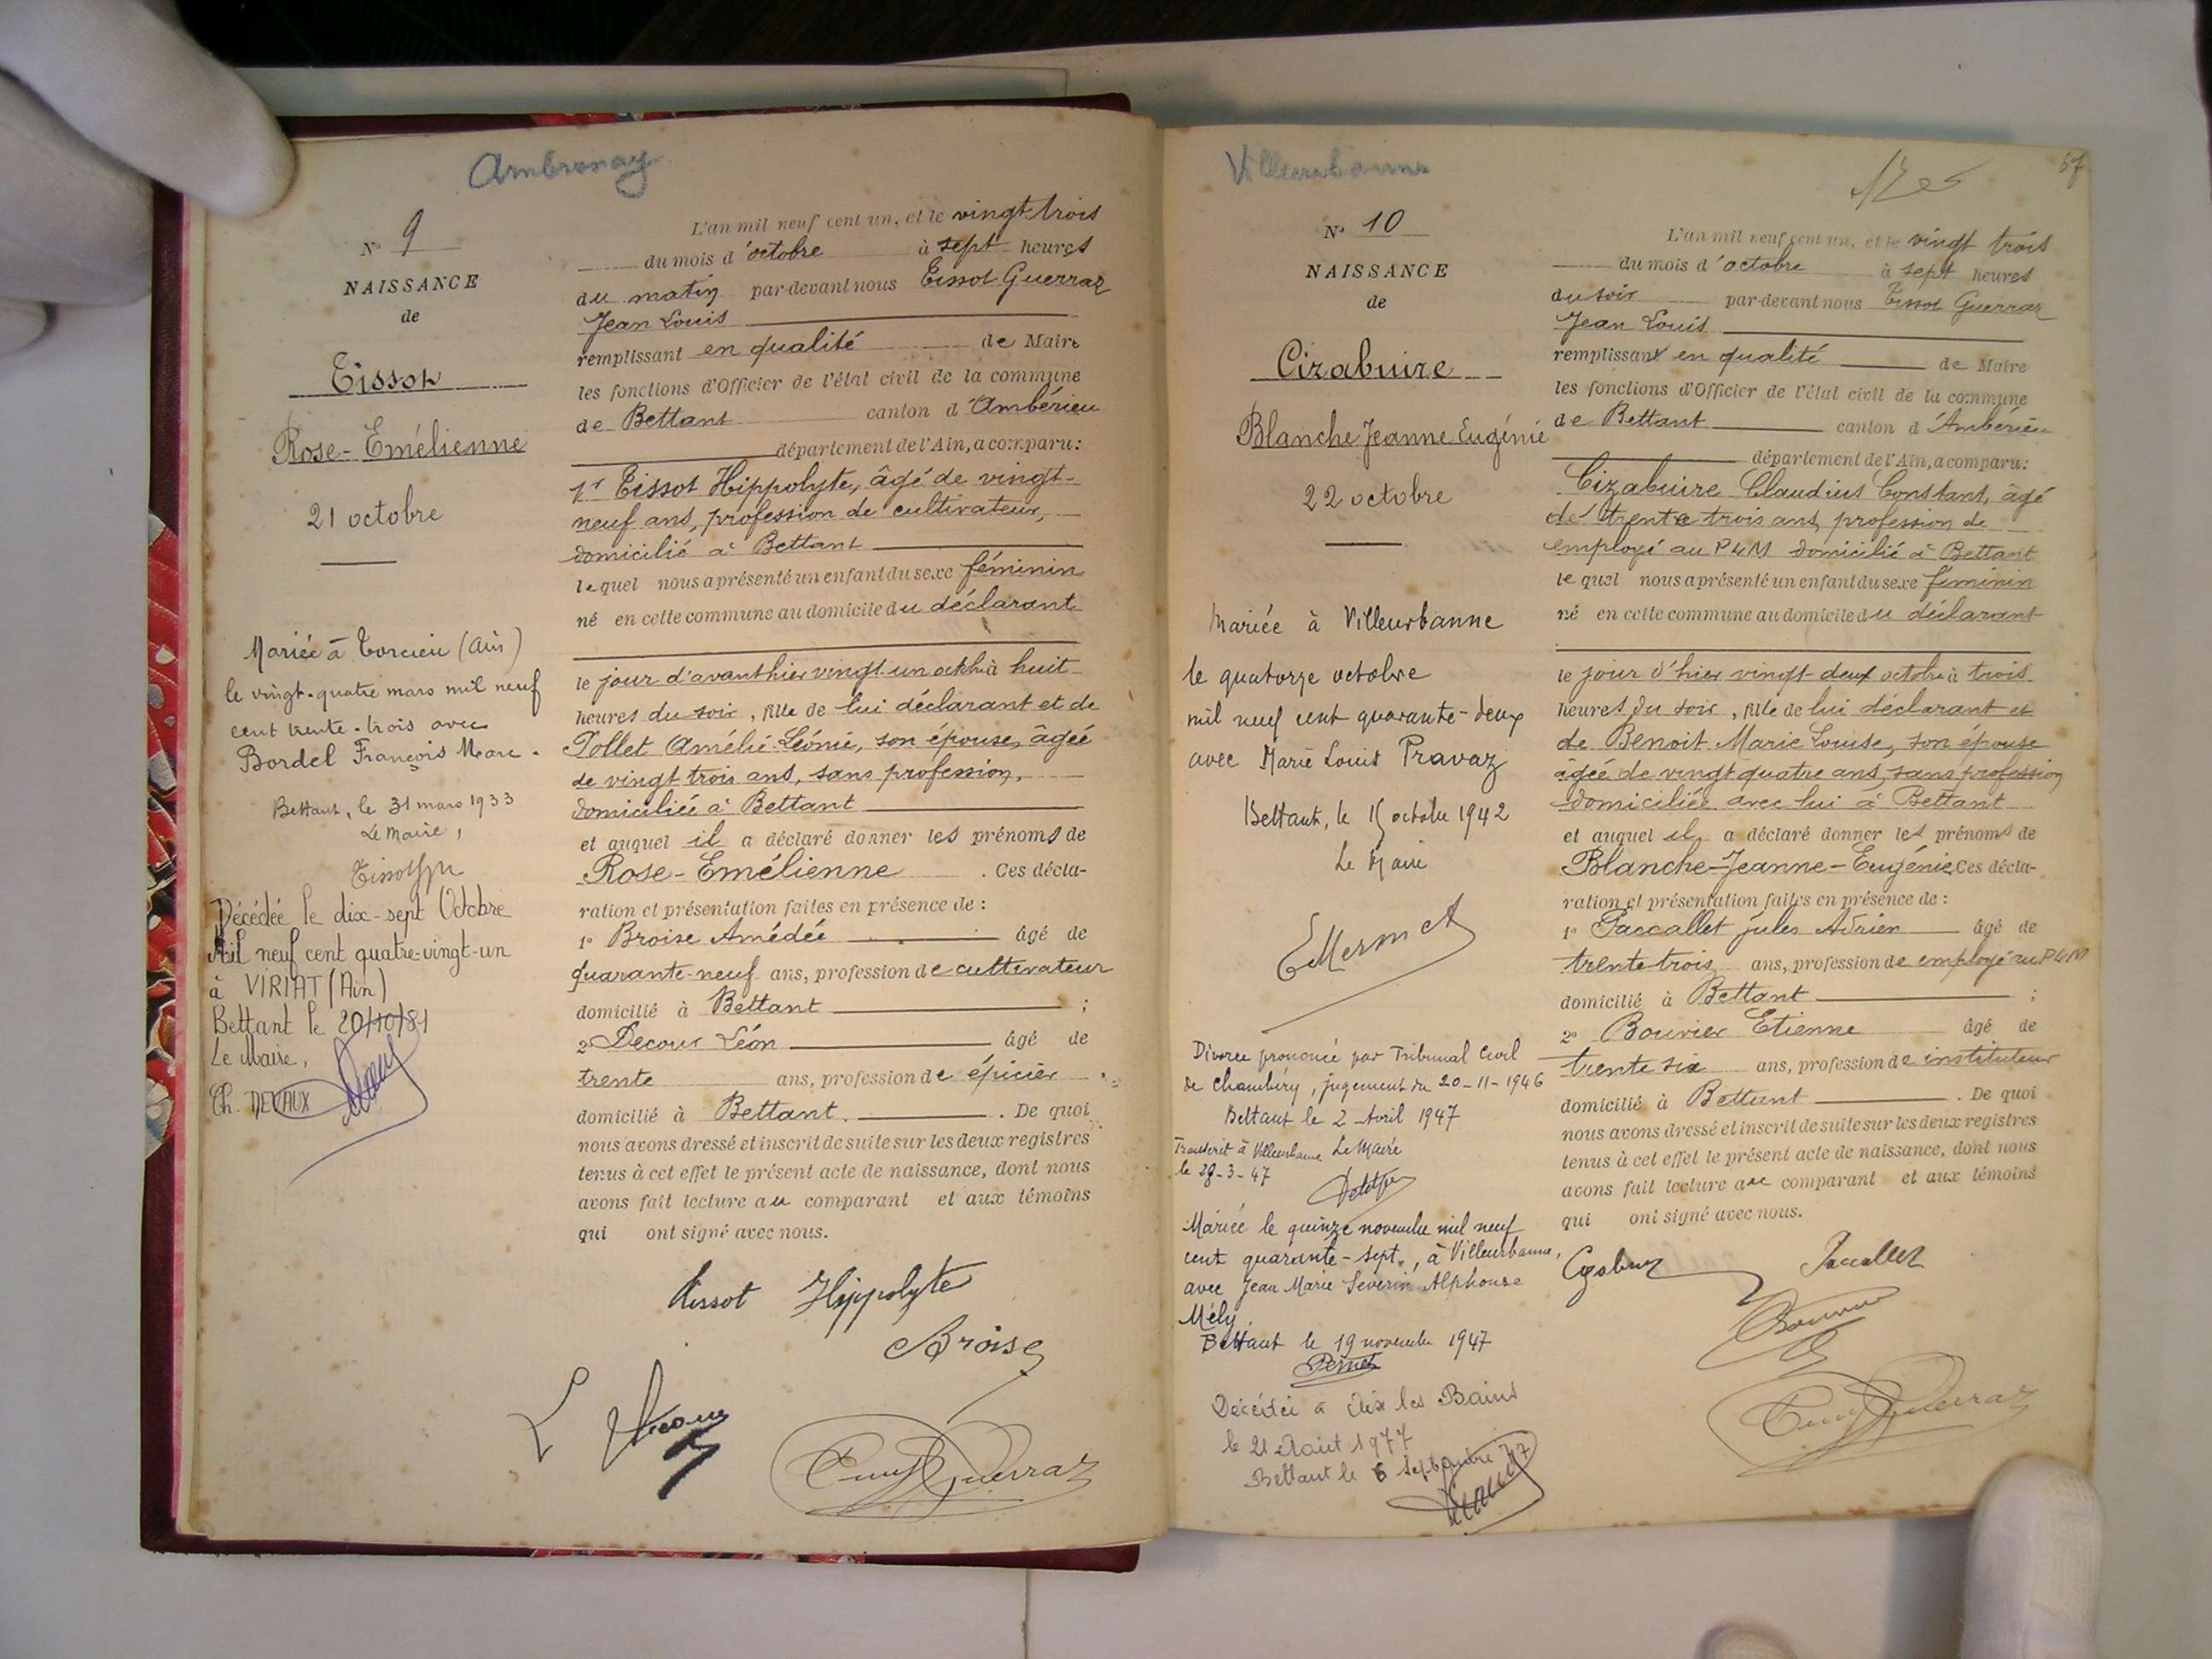 Ambronay
N° 9
NAISSANCE
de
Tissot
Rose-Emélienne
21 octobre
Mariée à Torcieu (Ain)
le vingt-quatre mars mil neuf
cent trente-trois avec
Bordel François Marc.
Bettant, le 31 mars 1933
Le Maire,
Décédée le dix-sept Octobre
Mil neuf cent quatre-vingt-un
à VIRIAT (Ain)
Bettant le 20/10/81
Le Maire,
Ch. DEVAUX
L'an mil neuf cent un, et le vingt trois
du mois d'octobre à sept heures
du matin par-devant nous Tissot Guerraz
Jean Louis
remplissant en qualité de Maire
les fonctions d'Officier de l'état civil de la commune
de Bettant canton d'Ambérieu
département de l'Ain, a comparu:
1r Tissot Hippolyte, âgé de vingt-
neuf ans, profession de cultivateur,
domicilié à Bettant
lequel nous a présenté un enfant du sexe féminin
né en cette commune au domicile du déclarant
le jour d'avant hier vingt-un octobre à huit
heures du soir, fille de lui déclarant et de
Pollet Amélie-Léonie, son épouse, âgée
de vingt trois ans, sans profession,
domiciliée à Bettant
et auquel il a déclaré donner les prénoms de
Rose-Emélienne. Ces décla-
ration et présentation faites en présence de :
1° Broise Amédée âgé de
quarante-neuf ans, profession de cultivateur
domicilié à Bettant ;
2° Decour Léon âgé de
trente ans, profession de épicier
domicilié à Bettant. De quoi
nous avons dressé et inscrit de suite sur les deux registres
tenus à cet effet le présent acte de naissance, dont nous
avons fait lecture au comparant et aux témoins
qui ont signé avec nous.
Tissot Hippolyte
Broise
Villeurbanne
67
N° 10
NAISSANCE
de
Cizabuire
Blanche Jeanne Eugénie
22 octobre
Mariée à Villeurbanne
le quatorze octobre
mil neuf cent quarante-deux
avec Marie Louis Pravaz
Bettant, le 15 octobre 1942
Le Maire
EMermet
Divorce prononcé par Tribunal Civil
de Chambéry, jugement du 20-11-1946
Bettant le 2 Avril 1947
Transcrit à Villeurbanne Le Maire
le 28-3-47
Mariée le quinze novembre mil neuf
cent quarante-sept, à Villeurbanne,
avec Jean Marie Séverin Alphonse
Mély.
Bettant le 19 novembre 1947
Pernet
Décédée à Aix les Bains
le 21 Août 1977
Bettant le 6 septembre 77
L'an mil neuf cent un, et le vingt trois
du mois d'octobre à sept heures
du soir par-devant nous Tissot Guerraz
Jean Louis
remplissant en qualité de Maire
les fonctions d'Officier de l'état civil de la commune
de Bettant canton d'Ambérieu
département de l'Ain, a comparu:
Cizabuire Claudius Constant, âgé
de trente trois ans, profession de
employé au PLM domicilié à Bettant
lequel nous a présenté un enfant du sexe féminin
né en cette commune au domicile du déclarant
le jour d'hier vingt-deux octobre à trois
heures du soir, fille de lui déclarant et
de Benoit Marie Louise, son épouse
âgée de vingt quatre ans, sans profession
domiciliée avec lui à Bettant
et auquel il a déclaré donner les prénoms de
Blanche-Jeanne-Eugénie. Ces décla-
ration et présentation faites en présence de :
1° Paccallet Jules Adrien âgé de
trente trois ans, profession de employé au PLM
domicilié à Bettant ;
2° Bouvier Etienne âgé de
trente six ans, profession de instituteur
domicilié à Bettant. De quoi
nous avons dressé et inscrit de suite sur les deux registres
tenus à cet effet le présent acte de naissance, dont nous
avons fait lecture au comparant et aux témoins
qui ont signé avec nous.
Paccallet